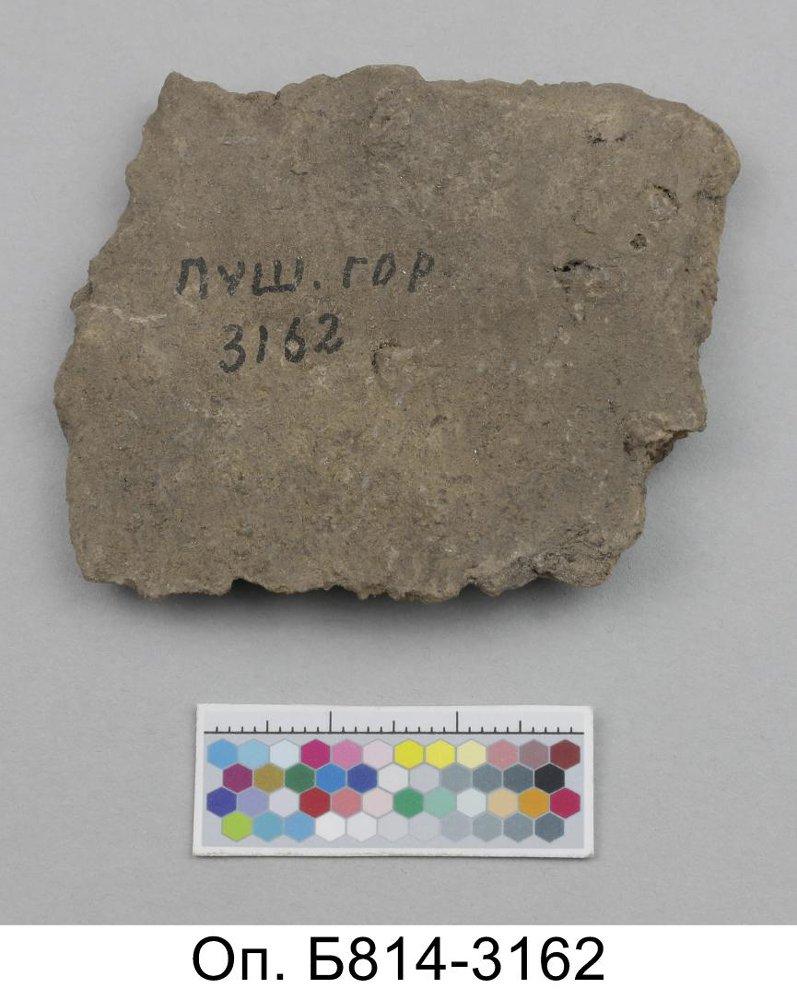 ПУШ. ГОР
3162
Оп. Б814-3162